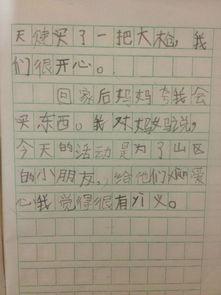 天使买了一把大枪，我
们很开心。
回家后妈妈夸我会
买东西。我对妈妈说，
今天的活动是为了山区
的小朋友，给他们献爱
心我觉得很有意义。